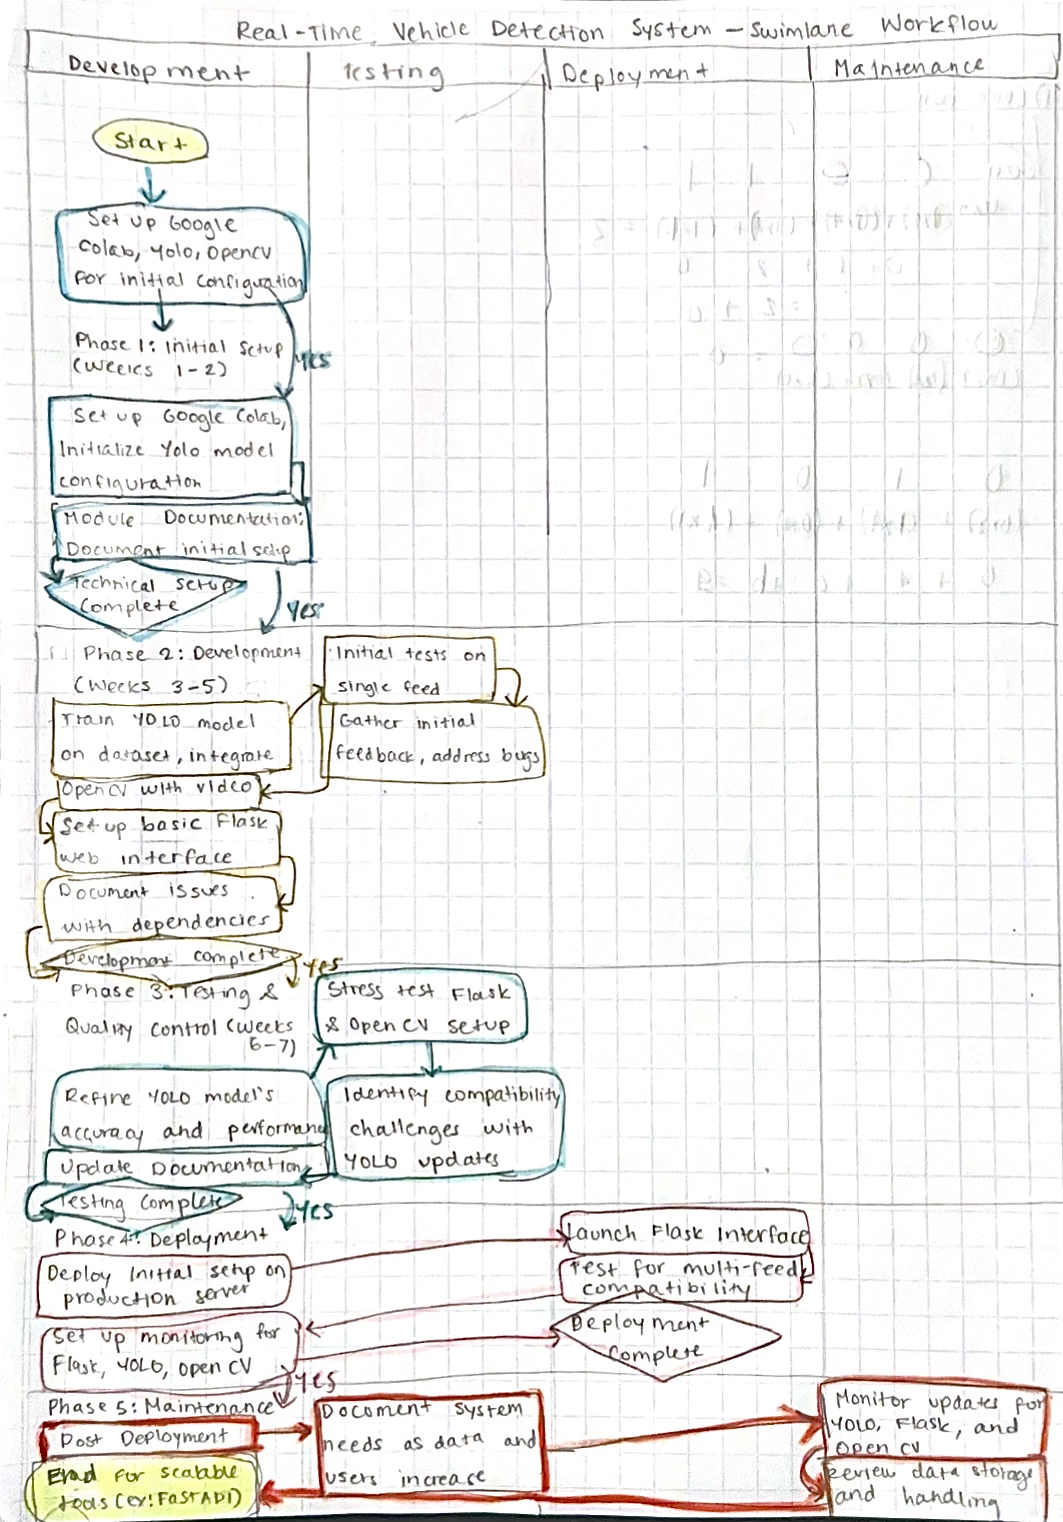 Real-Time Vehicle Detection System - Swimlane Workflow
Development
Testing
Deployment
Maintenance
Start
Set up Google
Colab, Yolo, OpenCV
for initial configuration
Phase 1: Initial setup
(Weeks 1-2)
Yes
Set up Google Colab,
Initialize Yolo model
configuration
Module Documentation:
Document initial setup
Technical setup
Complete
Yes
Phase 2: Development
(Weeks 3-5)
Initial tests on
single feed
Train YOLO model
on dataset, integrate
Gather initial
feedback, address bugs
OpenCV with video
Set up basic Flask
web interface
Document issues
with dependencies
Development complete
Yes
Phase 3: Testing &
Quality Control (Weeks
6-7)
Stress test Flask
& OpenCV setup
Refine YOLO model's
accuracy and performanc
Identify compatibility
challenges with
YOLO updates
Update Documentation
Testing Complete
Yes
Phase 4: Deployment
Launch Flask Interface
Deploy initial setup on
production server
Test for multi-feed
compatibility
Set up monitoring for
Flask, YOLO, open CV
Deployment
Complete
Yes
Phase 5: Maintenance
Post Deployment
Document system
needs as data and
users increase
Monitor updates for
YOLO, Flask, and
Open CV
Review data storage
and handling
End for scalable
tools (ex: FastAPI)